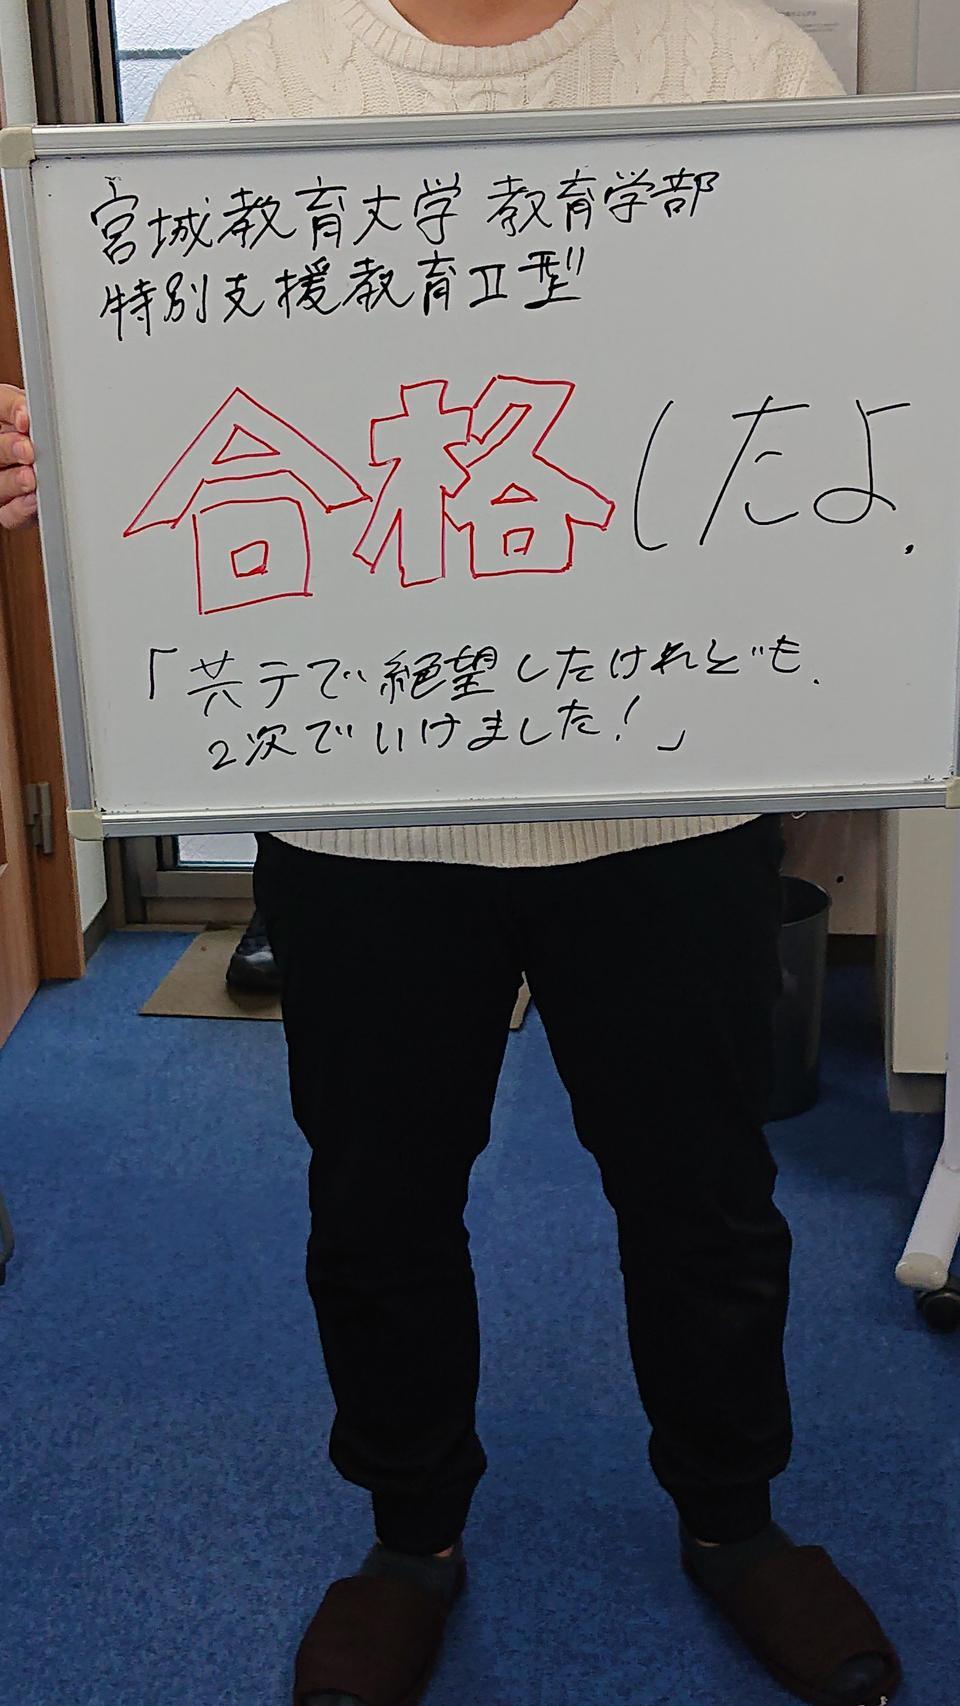 宮城教育大学 教育学部
特別支援教育Ⅱ型
合格したよ.
「共テで絶望したけれども.
2次でいけました!」